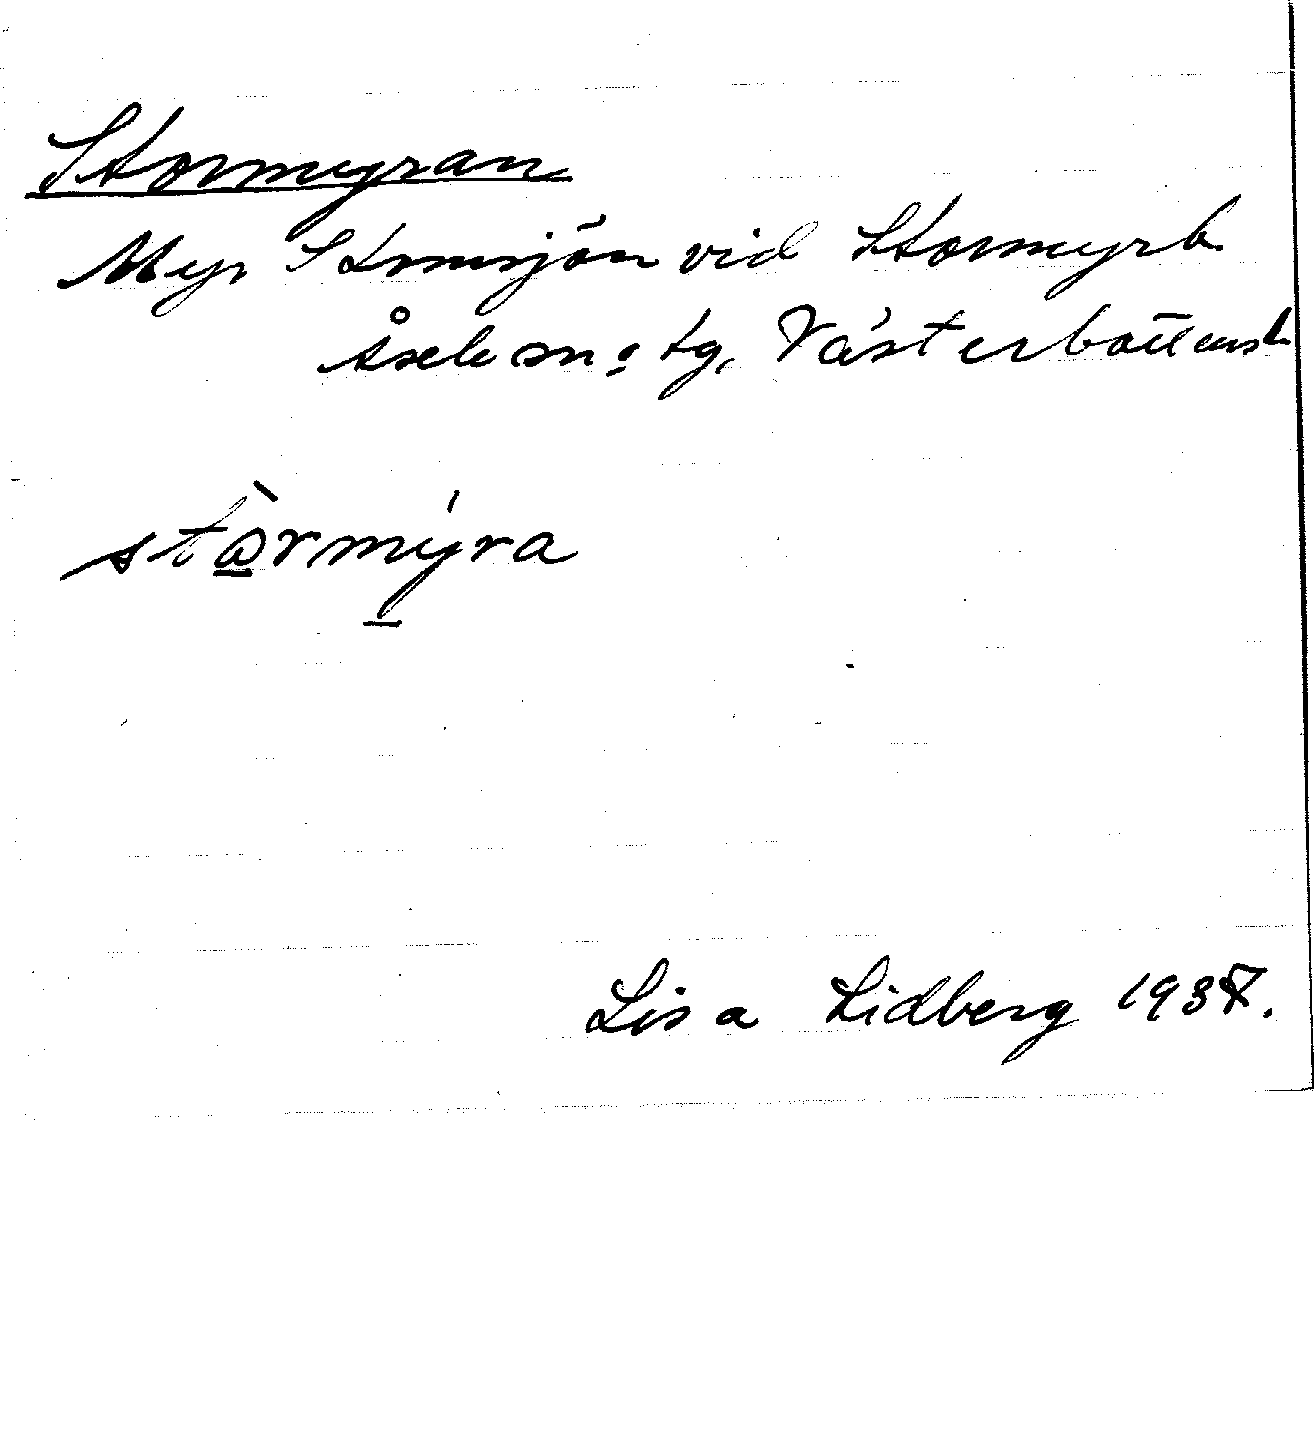 Stormyran
Myr Stensjön vid Stormyrb.
Åsele sn o tg, Västerbottensl.
stòrmýra
Lisa Lidberg 1937.